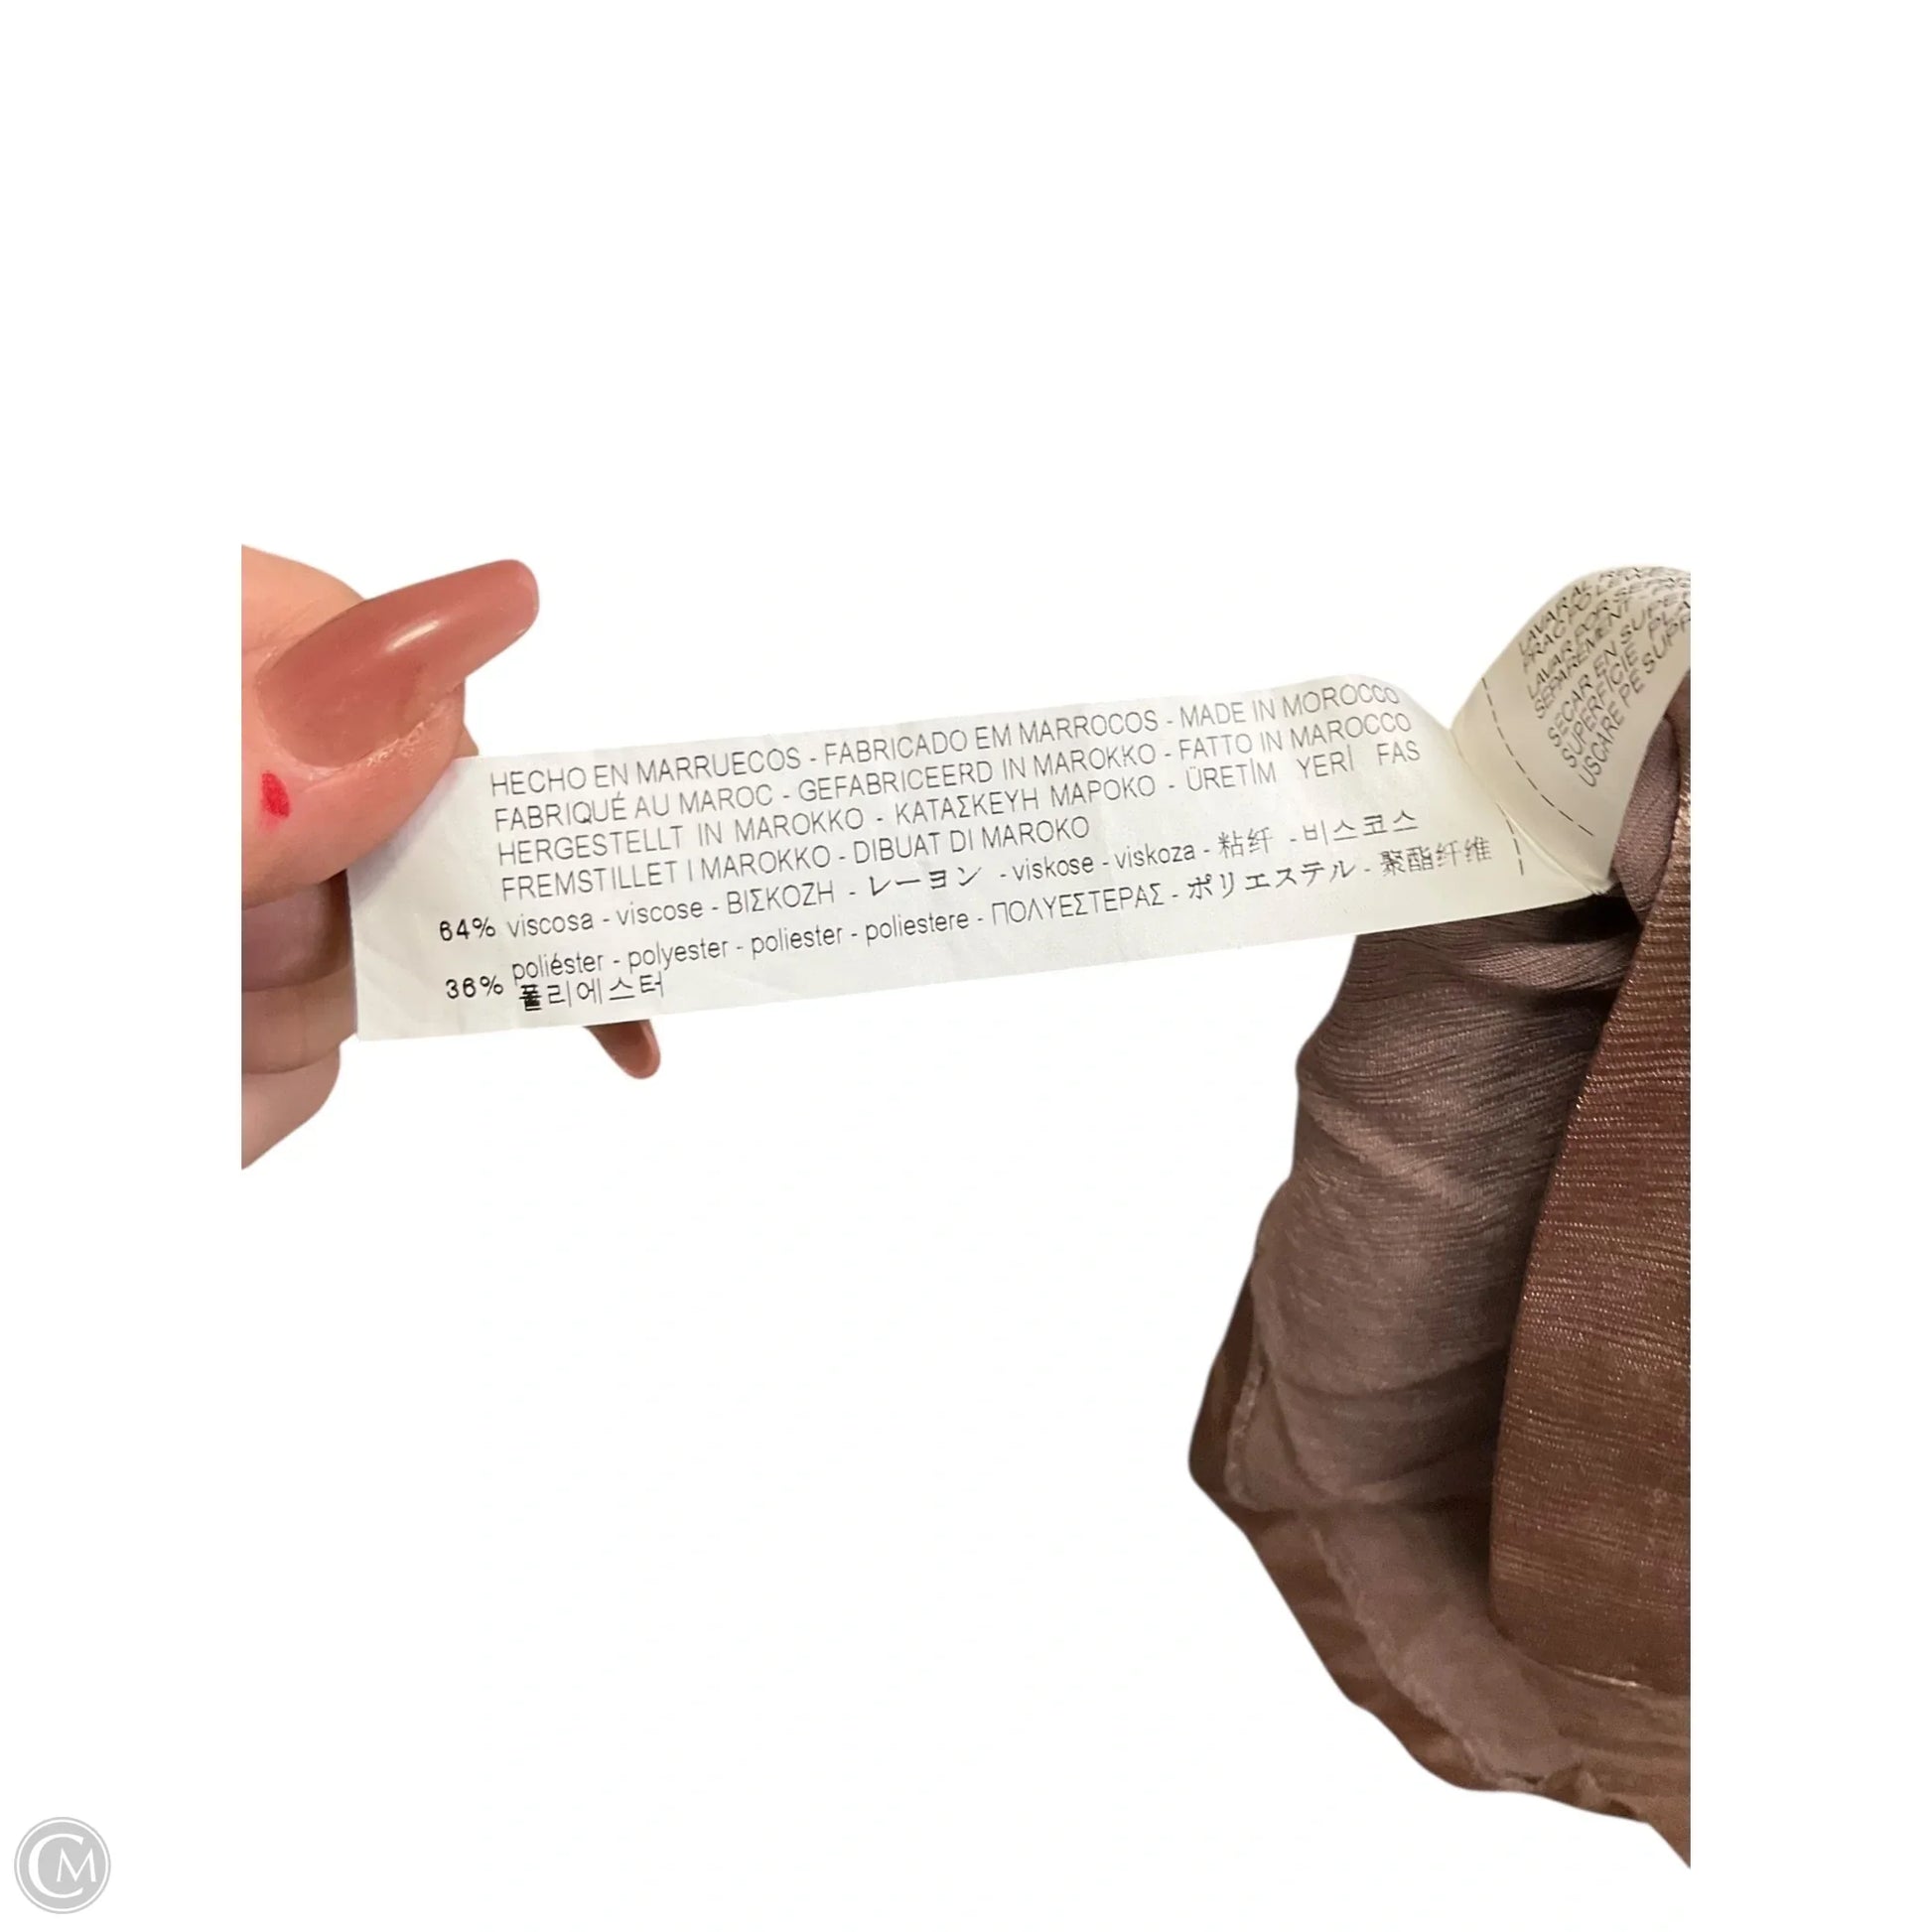 HECHO EN MARRUECOS - FABRICADO EM MARROCOS - MADE IN MOROCCO
FABRIQUÉ AU MAROC - GEFABRICEERD IN MAROKKO - FATTO IN MAROCCO
HERGESTELLT IN MAROKKO - ΚΑΤΑΣΚΕΥΗ ΜΑΡΟΚΟ - ÜRETİM YERİ FAS
FREMSTILLET I MAROKKO - DIBUAT DI MAROKO
64% viscosa - viscose - ΒΙΣΚΟΖΗ - レーヨン - viskose - viskoza - 粘纤 - 비스코스
36% poliéster - polyester - poliester - poliestere - ΠΟΛΥΕΣΤΕΡΑΣ - ポリエステル - 聚酯纤维
폴리에스터
LAVAR AL
LAVAR POR
SECAR EN
SUPERFICIE
USCARE PE
CM